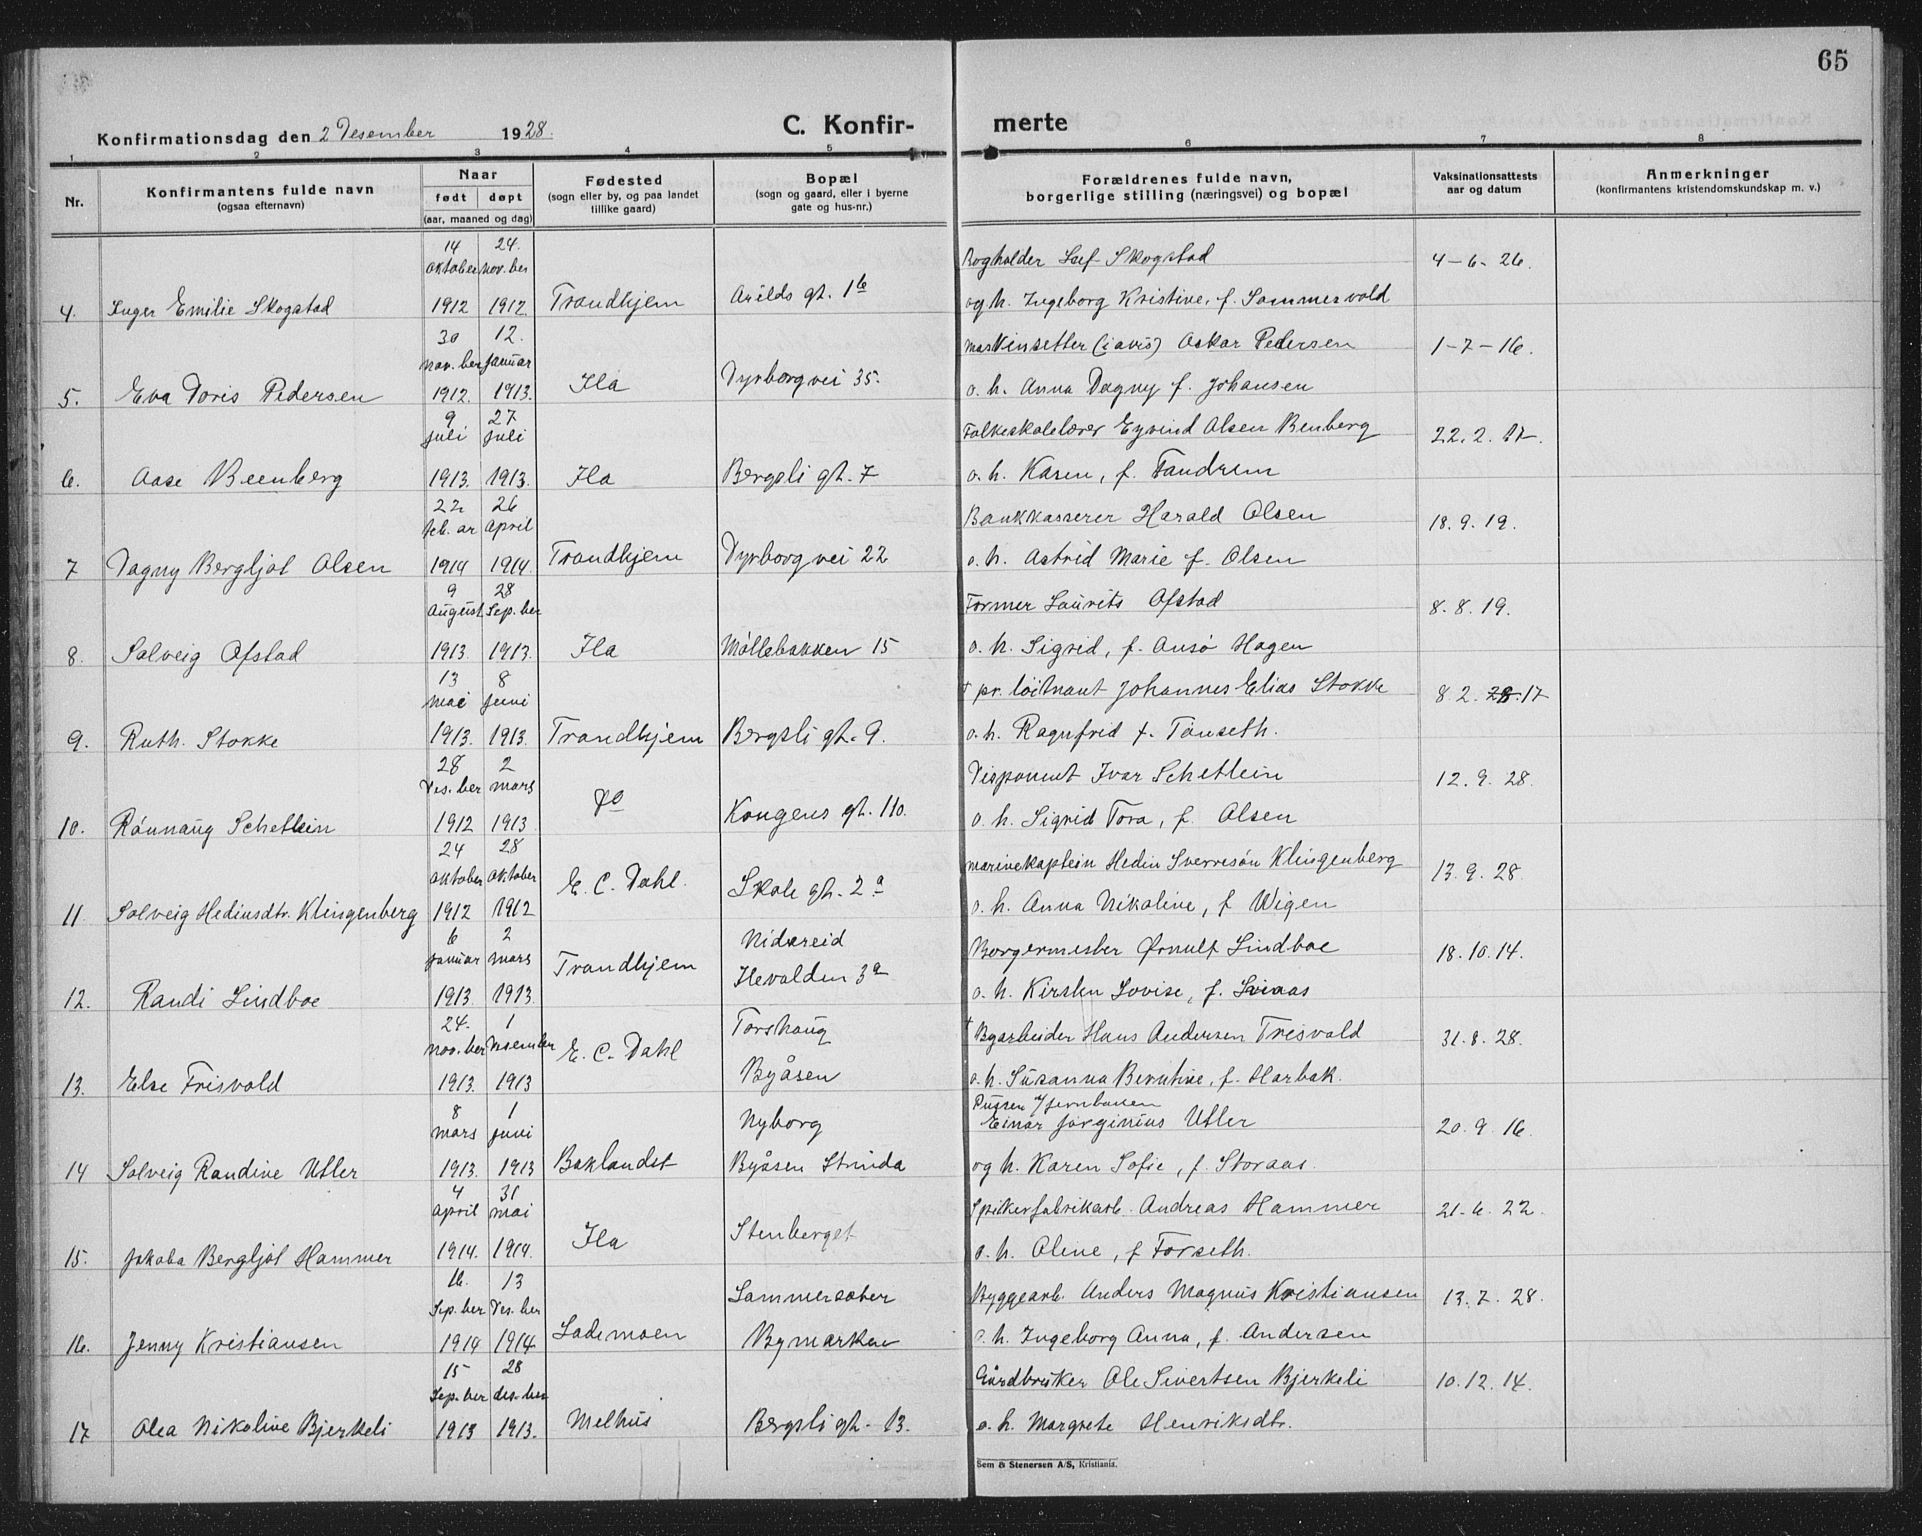 65
Konfirmationsdag den 2 Desember 1928. C. Konfir-merte
1 2 3 4 5 6 7 8
Nr. Konfirmantens fulde navn (ogsaa efternavn) Naar født døpt (aar, maaned og dag) Fødested (sogn eller by, og paa landet tillike gaard) Bopæl (sogn og gaard, eller i byerne gate og hus-nr.) Forældrenes fulde navn, borgerlige stilling (næringsvei) og bopæl Vaksinationsattests aar og datum Anmerkninger (konfirmantens kristendomskundskap m. v.)
14 24.
oktober nov.ber Bogholder Leif Skogstad 4-6-26.
4. Inger Emilie Skogstad 1912 1912. Trondhjem Arilds gt. 1b og h. Ingeborg Kristine, f. Sommervold
30 12.
nov.ber januar maskinsetter (i avis) Oskar Pedersen 1-7-16.
5. Eva Doris Pedersen 1912. 1913. Ila Dyrborgvei 35. o. h. Anna Dagny f. Johansen
9 27
juli juli Folkeskolelærer Eyvind Olsen Benberg 22.2.17.
6. Aase Beenberg 1913. 1913. Ila Bergsli gt. 7 o. h. Karen, f. Fandrem
22 26
feb.ar April Bankkasserer Harald Olsen 18.9.19.
7 Dagny Bergljot Olsen 1914 1914. Trondhjem Dyrborgvei 22 o. h. Astrid Marie f. Olsen
9 28
August Sep.ber Former Laurits Ofstad 8.8.19.
8. Solveig Ofstad 1913. 1913. Ila Møllebakken 15 o. h. Sigrid, f. Ansø Hagen
13 8
mai juni † pr. løitnant Johannes Elias Stokke 8.2.17
9. Ruth. Stokke 1913. 1913. Trondhjem Bergsli gt. 9. o. h. Ragnfrid f. Tønseth.
28 2
Des.ber mars Disponent Ivar Schetlein 12.9.28.
10. Rønnaug Schetlein 1912 1913. do Kongens gt. 110. o. h. Sigrid Tora, f. Olsen
24 28
oktober oktober marinekaptein Hedin Sverresøn Klingenberg 13.9.28.
11. Solveig Hedinsdtr. Klingenberg 1912 1912 E. C. Dahl. Skole gt. 2a o. h. Anna Nikoline, f. Wigen
6 2 Nidareid
januar mars Borgermester Ørnulf Lindboe 18.10.14.
12. Randi Lindboe 1913. 1913. Trondhjem Ilevolden 3a o. h. Kirsten Lovise, f.
24. 1 Torshaug
nov.ber Desember † Byarbeider Hans Andersen Frisvold 31.8.28.
13. Else Frisvold 1913. 1913 E. C. Dahl Byåsen o. h. Susanna Berntine, f. Harbak.
8 1 Nyborg Pusser v/ jernbanen
mars juni Einar Jørginius Utler 20.9.16.
14 Solveig Randine Utler 1913. 1913 Baklandet Byåsen Strinda og h. Karen Sofie, f. Storaas.
4 31
april mai Spikerfabrikarb. Andreas Hammer 21.6.22.
15. Jakoba Bergljot Hammer 1914. 1914. Ila Stenberget o. h. Oline, f Forseth.
16. 13
Sep.ber Des.ber Sommersæter Byggearb. Anders Magnus Kristiansen 13.7.28.
16. Jenny Kristiansen 1914 1914 Lademoen Bymarken o. h. Ingeborg Anna, f. Andersen
15 28
Sep.ber des.ber Gårdbruker Ole Sivertsen Bjerkeli 10.12.14.
17 Olea Nikoline Bjerkeli 1913 1913. Melhus Bergsli gt. 13. o. h. Margrete Henriksdtr.
Sem & Stenersen A/S, Kristiania.